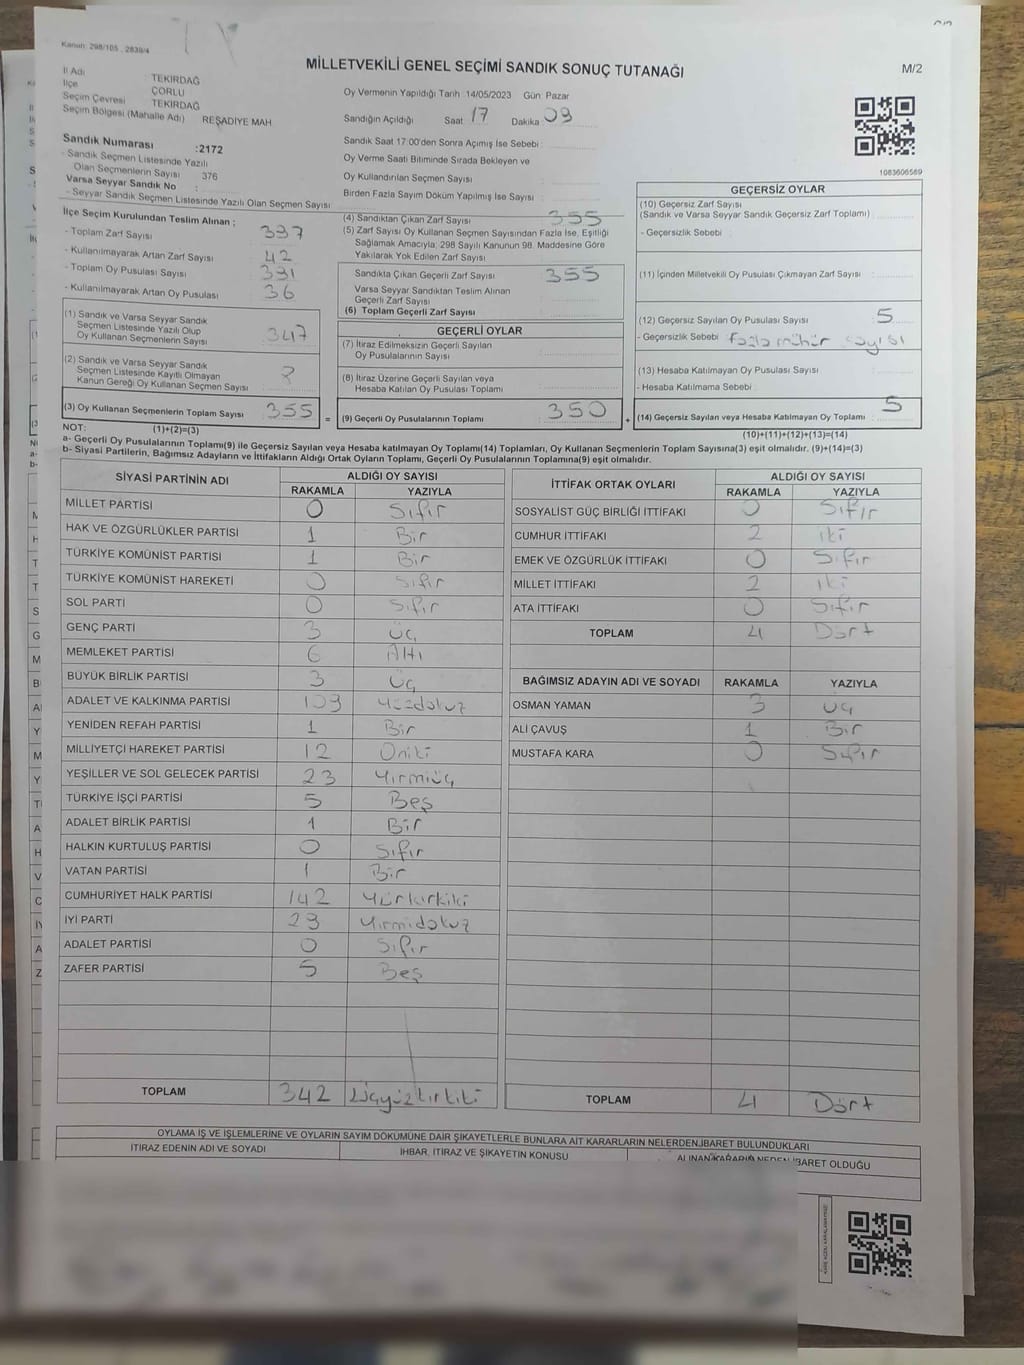 Kanun: 298/105 , 2839/4
MİLLETVEKİLİ GENEL SEÇİMİ SANDIK SONUÇ TUTANAĞI
M/2
İl Adı : TEKİRDAĞ
İlçe : ÇORLU
Seçim Çevresi : TEKİRDAĞ
Seçim Bölgesi (Mahalle Adı) REŞADİYE MAH
Oy Vermenin Yapıldığı Tarih :14/05/2023 Gün: Pazar
Sandığın Açıldığı Saat 17 Dakika 09
Sandık Saat 17:00'den Sonra Açımış İse Sebebi :
Oy Verme Saati Bitiminde Sırada Bekleyen ve
Oy Kullandırılan Seçmen Sayısı :
Birden Fazla Sayım Döküm Yapılmış İse Sayısı :
1083606569
Sandık Numarası :2172
- Sandık Seçmen Listesinde Yazılı
Olan Seçmenlerin Sayısı : 376
Varsa Seyyar Sandık No :
- Seyyar Sandık Seçmen Listesinde Yazılı Olan Seçmen Sayısı :
İlçe Seçim Kurulundan Teslim Alınan ;
- Toplam Zarf Sayısı : 397
- Kullanılmayarak Artan Zarf Sayısı : 42
- Toplam Oy Pusulası Sayısı : 391
- Kullanılmayarak Artan Oy Pusulası : 36
(1) Sandık ve Varsa Seyyar Sandık
Seçmen Listesinde Yazılı Olup
Oy Kullanan Seçmenlerin Sayısı : 347
(2) Sandık ve Varsa Seyyar Sandık
Seçmen Listesinde Kayıtlı Olmayan
Kanun Gereği Oy Kullanan Seçmen Sayısı : 8
(3) Oy Kullanan Seçmenlerin Toplam Sayısı : 355 =
(1)+(2)=(3)
(4) Sandıktan Çıkan Zarf Sayısı : 355
(5) Zarf Sayısı Oy Kullanan Seçmen Sayısından Fazla İse, Eşitliği
Sağlamak Amacıyla, 298 Sayılı Kanunun 98. Maddesine Göre
Yakılarak Yok Edilen Zarf Sayısı :
Sandıkta Çıkan Geçerli Zarf Sayısı : 355
Varsa Seyyar Sandıktan Teslim Alınan
Geçerli Zarf Sayısı :
(6) Toplam Geçerli Zarf Sayısı :
GEÇERLİ OYLAR
(7) İtiraz Edilmeksizin Geçerli Sayılan
Oy Pusulalarının Sayısı :
(8) İtiraz Üzerine Geçerli Sayılan veya
Hesaba Katılan Oy Pusulası Toplamı :
(9) Geçerli Oy Pusulalarının Toplamı : 350 +
GEÇERSİZ OYLAR
(10) Geçersiz Zarf Sayısı
(Sandık ve Varsa Seyyar Sandık Geçersiz Zarf Toplamı) :
- Geçersizlik Sebebi :
(11) İçinden Milletvekili Oy Pusulası Çıkmayan Zarf Sayısı :
(12) Geçersiz Sayılan Oy Pusulası Sayısı : 5
- Geçersizlik Sebebi : fazla mühür sayısı
(13) Hesaba Katılmayan Oy Pusulası Sayısı :
- Hesaba Katılmama Sebebi :
(14) Geçersiz Sayılan veya Hesaba Katılmayan Oy Toplamı : 5
(10)+(11)+(12)+(13)=(14)
NOT:
a- Geçerli Oy Pusulalarının Toplamı(9) ile Geçersiz Sayılan veya Hesaba katılmayan Oy Toplamı(14) Toplamları, Oy Kullanan Seçmenlerin Toplam Sayısına(3) eşit olmalıdır. (9)+(14)=(3)
b- Siyasi Partilerin, Bağımsız Adayların ve İttifakların Aldığı Ortak Oyların Toplamı, Geçerli Oy Pusulalarının Toplamına(9) eşit olmalıdır.
SİYASİ PARTİNİN ADI ALDIĞI OY SAYISI
RAKAMLA YAZIYLA
MİLLET PARTİSİ 0 Sıfır
HAK VE ÖZGÜRLÜKLER PARTİSİ 1 Bir
TÜRKİYE KOMÜNİST PARTİSİ 1 Bir
TÜRKİYE KOMÜNİST HAREKETİ 0 Sıfır
SOL PARTİ 0 Sıfır
GENÇ PARTİ 3 Üç
MEMLEKET PARTİSİ 6 Altı
BÜYÜK BİRLİK PARTİSİ 3 Üç
ADALET VE KALKINMA PARTİSİ 109 Yüzdokuz
YENİDEN REFAH PARTİSİ 1 Bir
MİLLİYETÇİ HAREKET PARTİSİ 12 Oniki
YEŞİLLER VE SOL GELECEK PARTİSİ 23 Yirmiüç
TÜRKİYE İŞÇİ PARTİSİ 5 Beş
ADALET BİRLİK PARTİSİ 1 Bir
HALKIN KURTULUŞ PARTİSİ 0 Sıfır
VATAN PARTİSİ 1 Bir
CUMHURİYET HALK PARTİSİ 142 Yüzkırkiki
İYİ PARTİ 29 Yirmidokuz
ADALET PARTİSİ 0 Sıfır
ZAFER PARTİSİ 5 Beş
TOPLAM 342 Üçyüzkırkiki
İTTİFAK ORTAK OYLARI ALDIĞI OY SAYISI
RAKAMLA YAZIYLA
SOSYALİST GÜÇ BİRLİĞİ İTTİFAKI 0 Sıfır
CUMHUR İTTİFAKI 2 iki
EMEK VE ÖZGÜRLÜK İTTİFAKI 0 Sıfır
MİLLET İTTİFAKI 2 iki
ATA İTTİFAKI 0 Sıfır
TOPLAM 4 Dört
BAĞIMSIZ ADAYIN ADI VE SOYADI RAKAMLA YAZIYLA
OSMAN YAMAN 3 Üç
ALİ ÇAVUŞ 1 Bir
MUSTAFA KARA 0 Sıfır
TOPLAM 4 Dört
OYLAMA İŞ VE İŞLEMLERİNE VE OYLARIN SAYIM DÖKÜMÜNE DAİR ŞİKAYETLERLE BUNLARA AİT KARARLARIN NELERDEN İBARET BULUNDUKLARI
İTİRAZ EDENİN ADI VE SOYADI İHBAR, İTİRAZ VE ŞİKAYETİN KONUSU ALINAN KARARIN NEDEN İBARET OLDUĞU